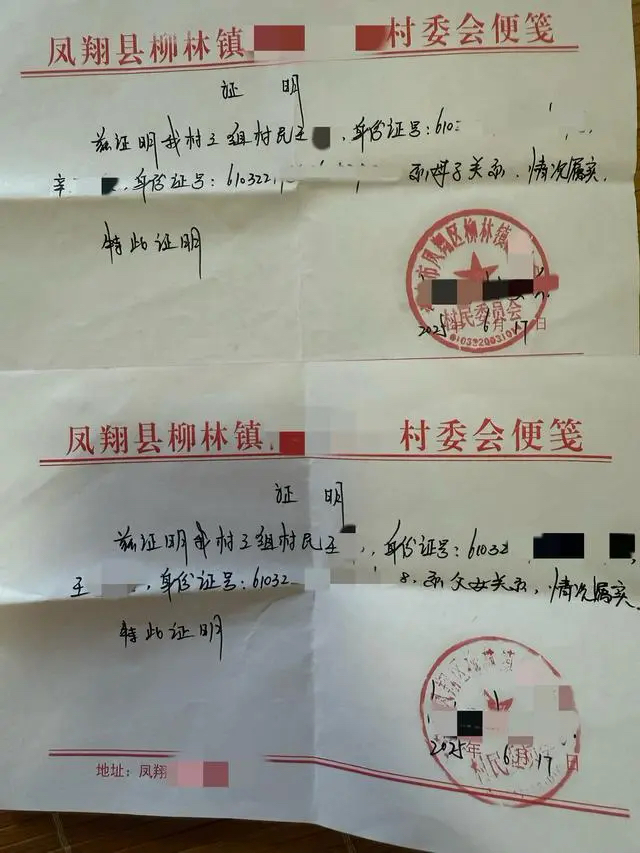 凤翔县柳林镇 村委会便笺
证 明
兹证明我村三组村民王 ,身份证号:610
辛 ,身份证号:610322 系母子关系,情况属实。
特此证明
市凤翔区柳林镇
村民委员会
2025年6月17日
凤翔县柳林镇 村委会便笺
证 明
兹证明我村三组村民王 ,身份证号:61032
王 ,身份证号:61032 8,系父女关系,情况属实
特此证明
凤翔区柳林镇
村民
2025年6月17日
地址:凤翔